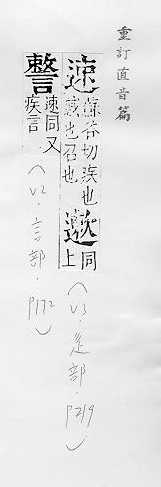 重訂直音篇
速 蘇谷切疾也
徵也召也
遬 同
上
(V3.辵部.P219.)
速同又
疾言
(V2.言部.P172.)